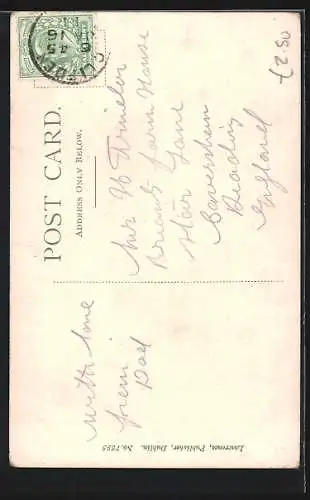 POST CARD.
ADDRESS ONLY BELOW.
£2.50
with love
from
Dad
Mrs H
Farm House
Star Lane
Caversham
Reading
England
Lawrence, Publisher, Dublin. No. 7295